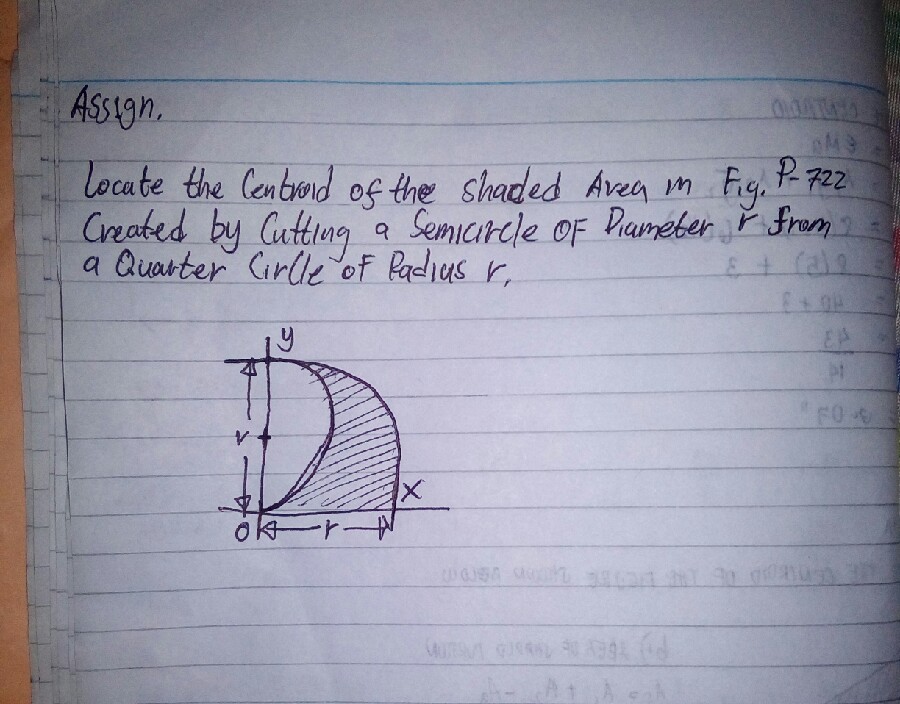 Assign.
Locate the Centroid of the shaded Area in Fig. P-722
Created by Cutting a Semicircle OF Diameter r from
a Quarter Circle of Radius r,
y
r
x
O
r